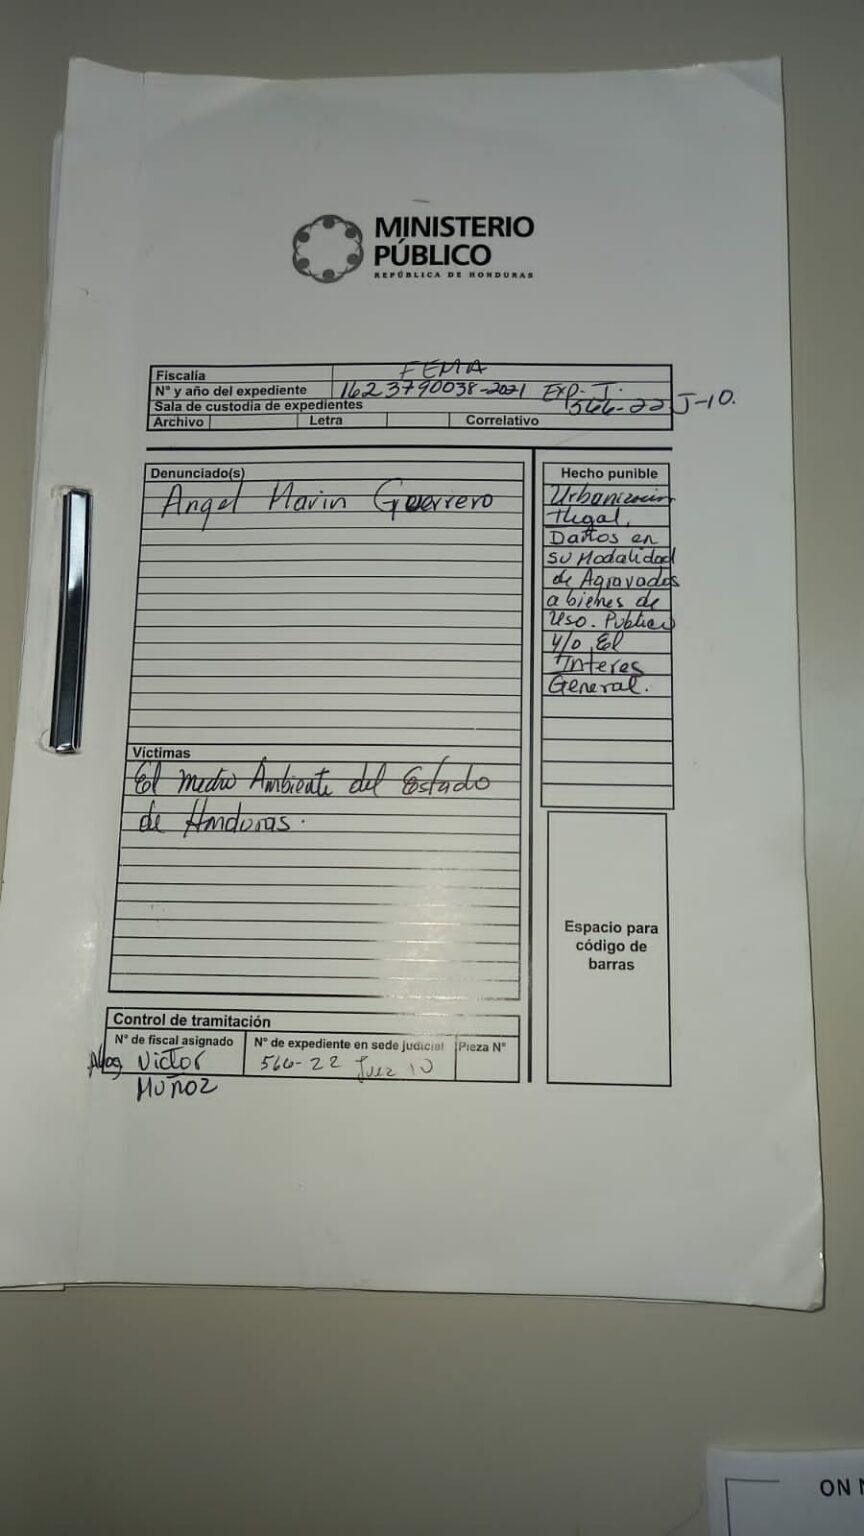 MINISTERIO
PÚBLICO
REPÚBLICA DE HONDURAS
Fiscalía FEMA
N° y año del expediente 1623790038-2021 Exp. T.
Sala de custodia de expedientes 566-22 J-10.
Archivo Letra Correlativo
Denunciado(s)
Angel Marin Guerrero
Hecho punible
Urbanizacion
Ilegal,
Daños en
su Modalidad
de Agravados
a bienes de
Uso. Publico
y/o El
Interes
General.
Víctimas
El medio Ambiente del Estado
de Honduras.
Espacio para
código de
barras
Control de tramitación
N° de fiscal asignado N° de expediente en sede judicial Pieza N°
Abog Victor 566-22 Juez 10
Muñoz
ON